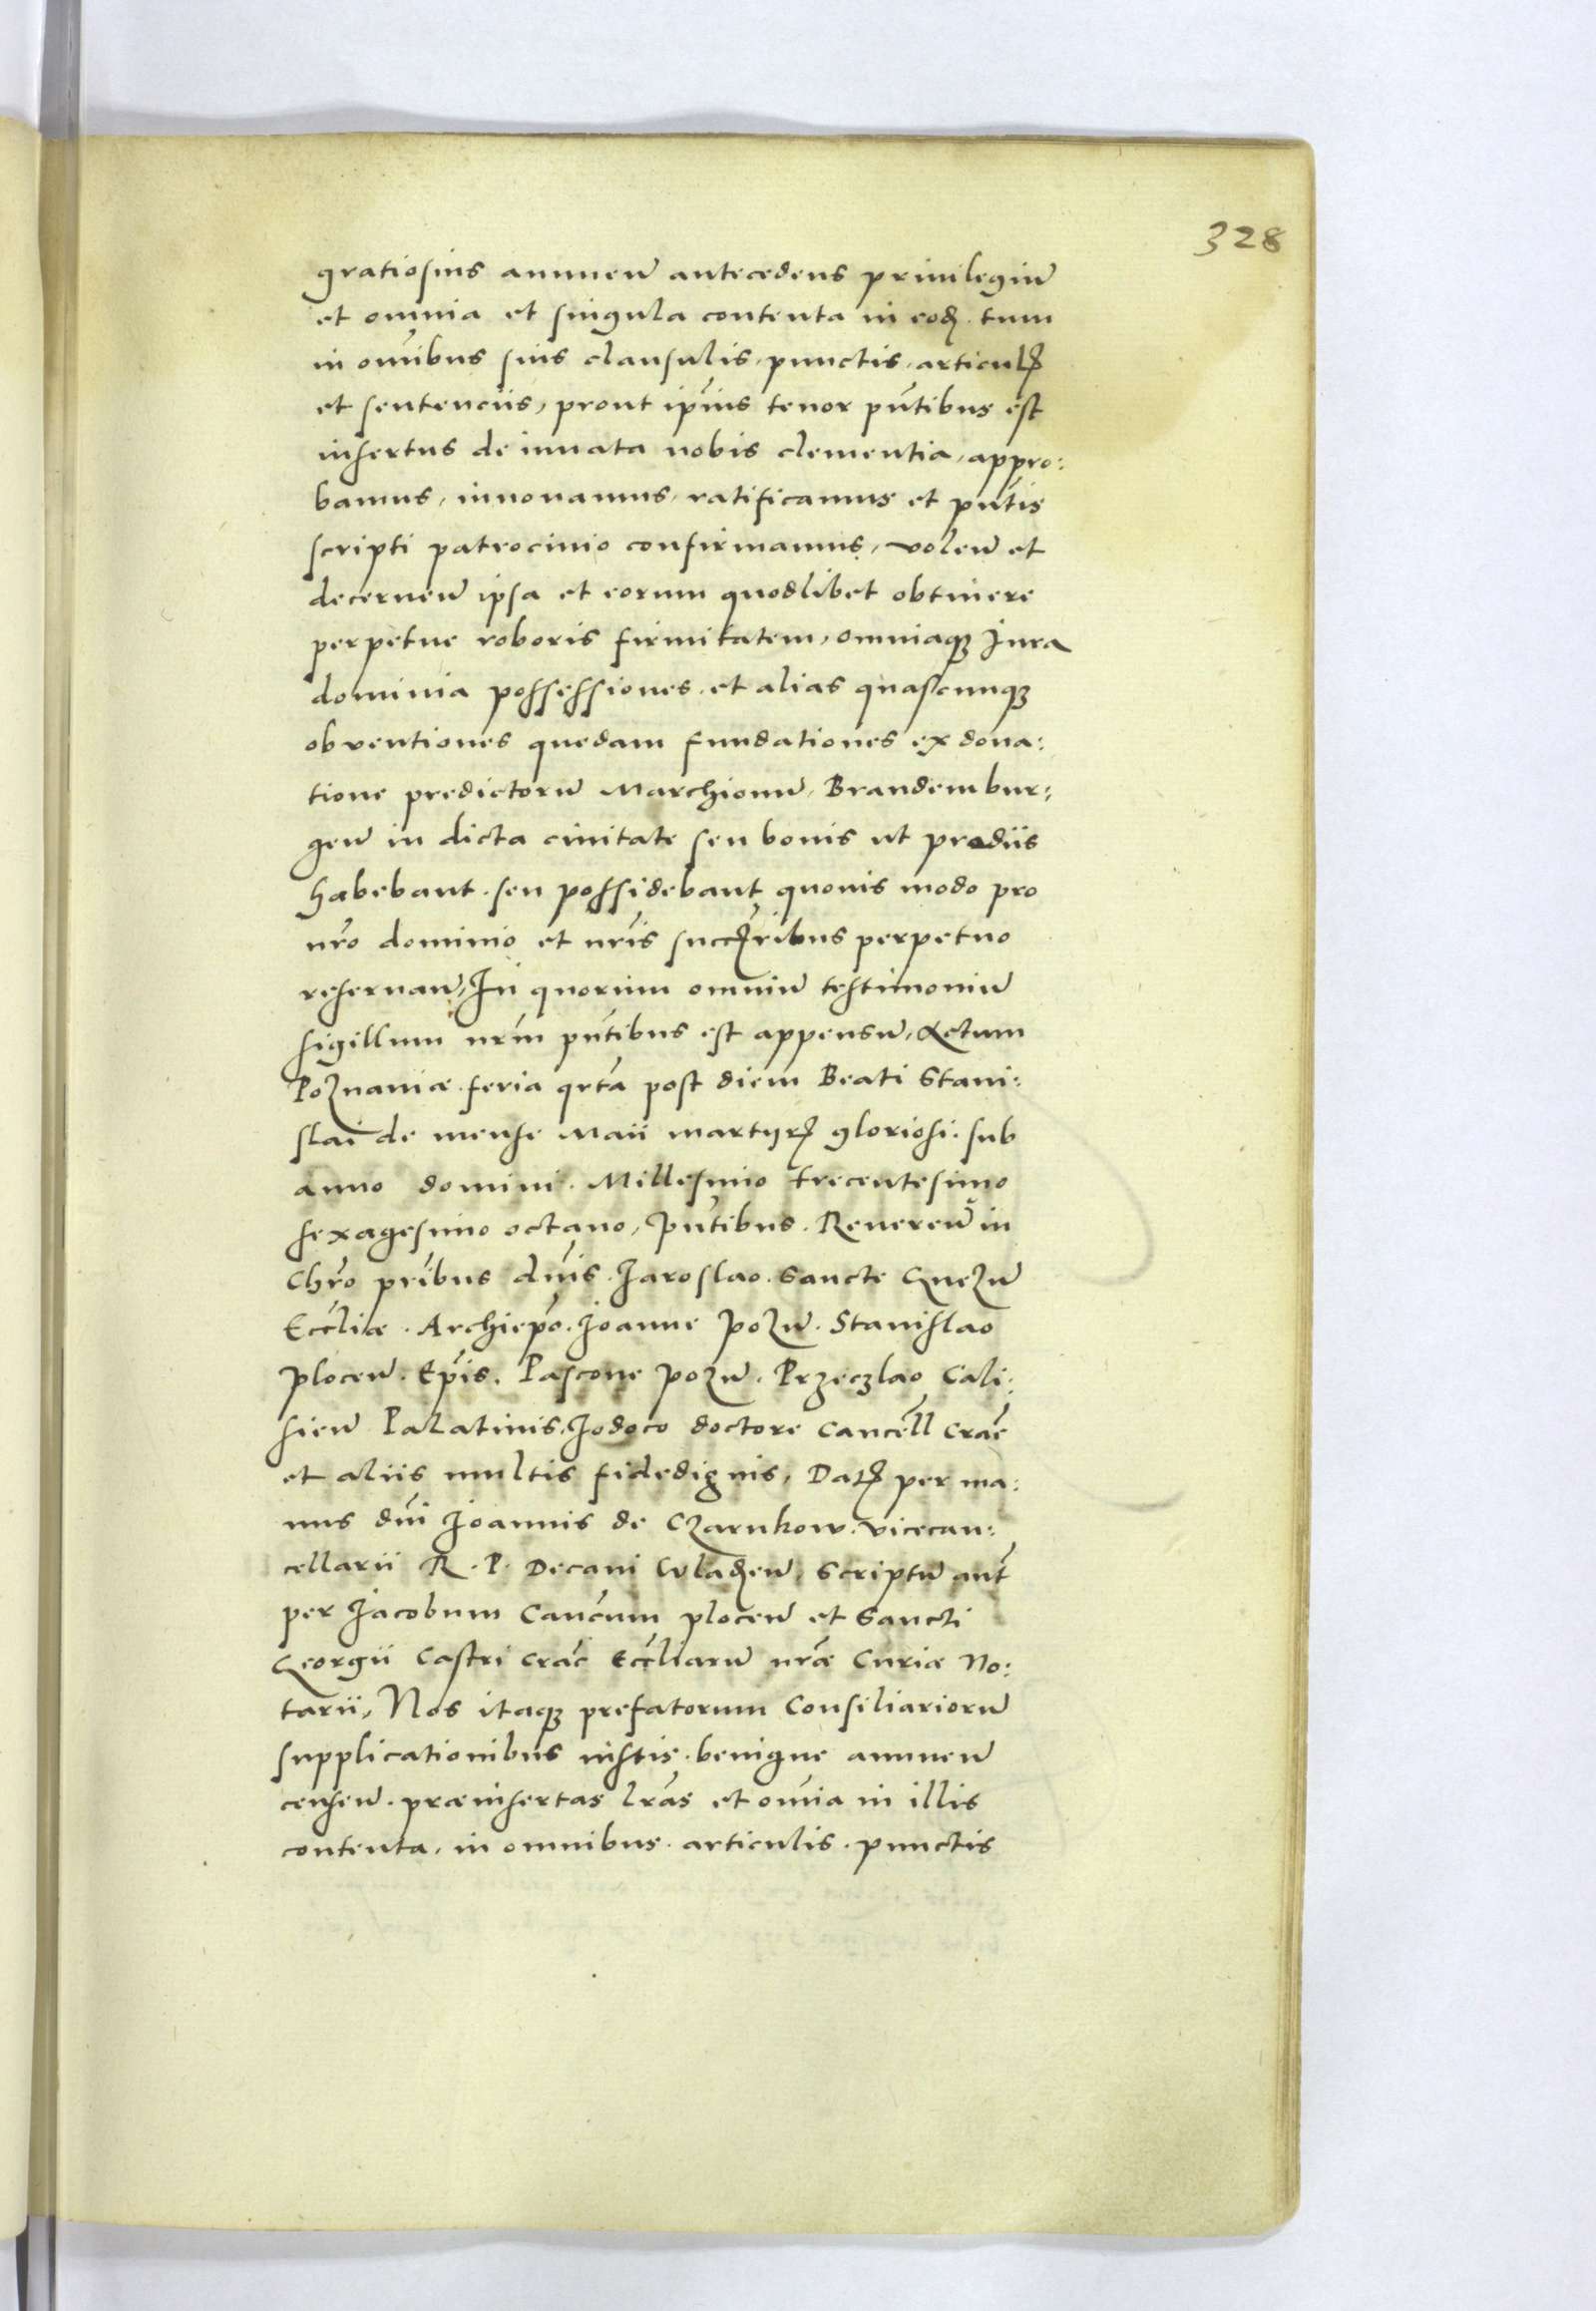 328
gratiosius annuen̄ antecedens priuilegiū
et omnia et singula contenta in eodꝫ. tum
in om̄ibus suis clausulis, punctis, articulꝭ
et sentenciis, prout ip̄ius tenor pn̄tibus est
insertus de innata nobis clementia, appro:
bamus, innouamus, ratificamus et pn̄tis
scripti patrocinio confirmamus, volen̄ et
decernen̄ ipsa et eorum quodlibet obtinere
perpetue roboris firmitatem, omniaqꝫ Jura
dominia possessiones. et alias quascunqꝫ
obventiones quedam fundationes ex dona:
tione predictorū Marchionū, Brandembur:
gen̄ in dicta ciuitate seu bonis ut prædiis
habebant. seu possidebant quouis modo pro
nr̄o dominio et nr̄is succꝭribus perpetuo
reseruan̄, In quorum omniū testimoniū
sigillum nr̄m pn̄tibus est appensū, Actum
Poznaniæ feria qrtā post diem Beati Stani:
slai de mense Maii martyrꝭ gloriosi. sub
anno domini. Millesimo trecentesimo
sexagesimo octauo, pn̄tibus. Reueren̄ in
Chr̄o pr̄ibus dn̄is. Jaroslao. Sancte Gnezn̄
Eccl̄iæ. Archiep̄o. Joanne pozn̄. Stanislao
plocen̄. Ep̄is. Pascone pozn̄. Przeczlao Cali:
sien̄ Palatinis, Jodoco doctore Cancell̄ Crac̄
et aliis multis fidedignis, Datꝭ per ma:
nus dn̄i Joannis de Czarnkow. vicecan:
cellarii R. P. Decani Wladꝫen̄, Scriptū aut̄
per Jacobum Can̄cum plocen̄ et Sancti
Georgii Castri Crac̄ Eccl̄iarū nr̄æ Curiæ No:
tarii, Nos itaqꝫ prefatorum Consiliariorū
supplicationibus iustis. benigne annuen̄
censen̄. præinsertas lr̄as et om̄ia in illis
contenta, in omnibus. articulis. punctis